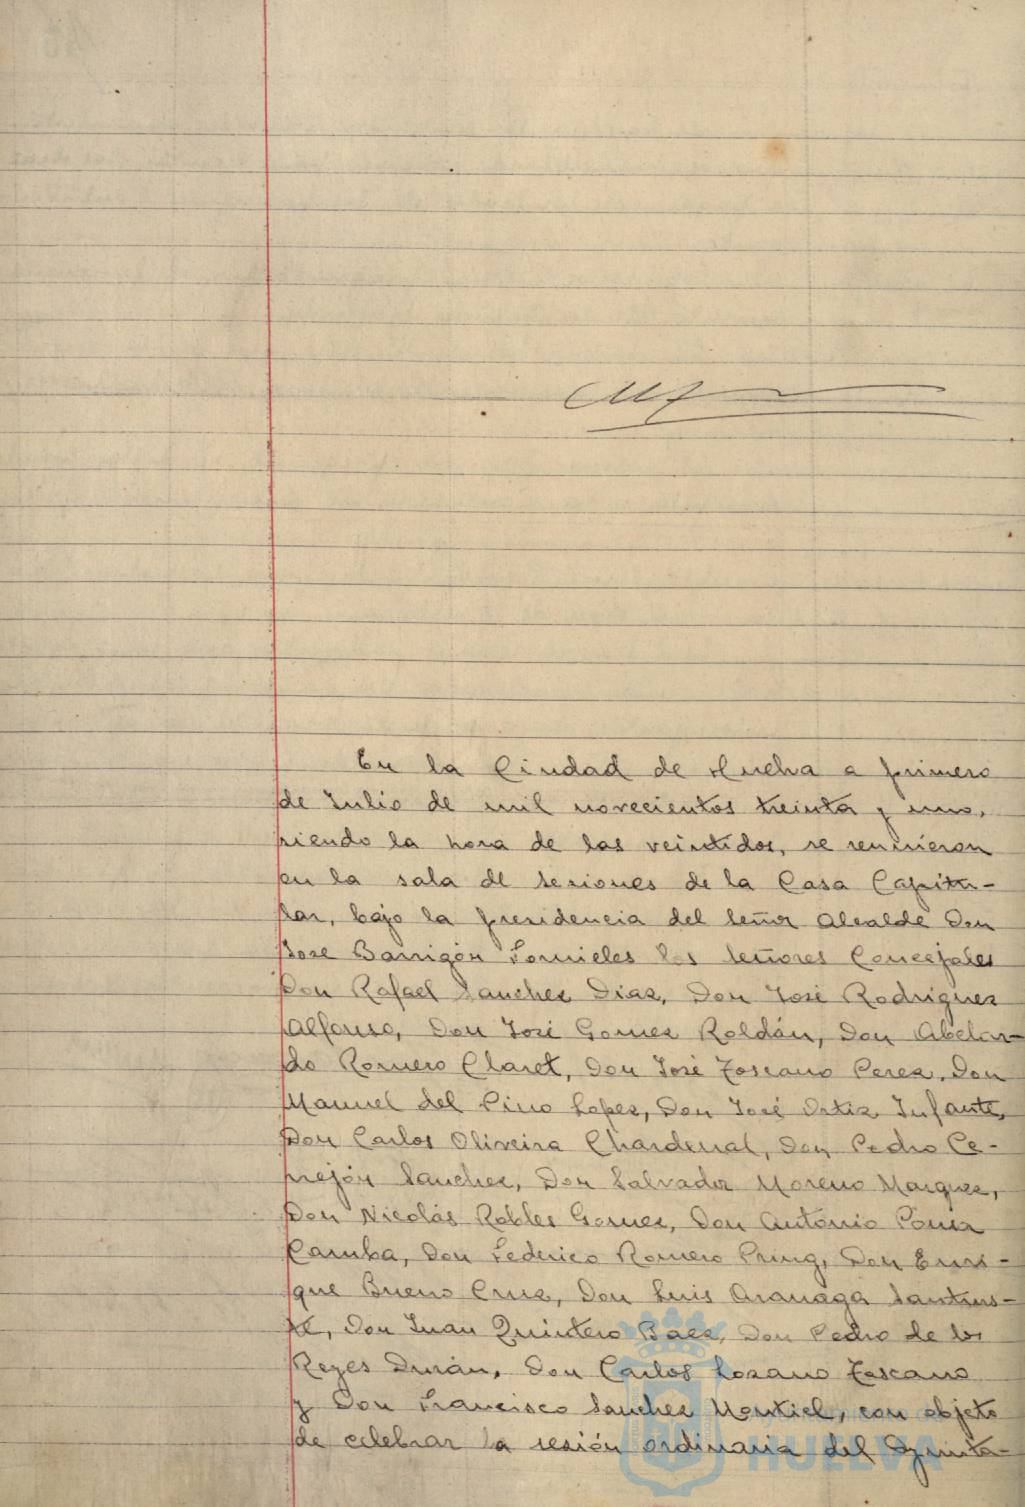 En la Ciudad de Huelva a primero
de Julio de mil novecientos treinta y uno,
siendo la hora de las veintidos, se reunieron
en la sala de sesiones de la Casa Capitu-
lar, bajo la presidencia del señor Alcalde Don
José Barrigón Fornieles los señores Concejales
Don Rafael Sanchez Diaz, Don José Rodriguez
Alfonso, Don José Gomez Roldán, Don Abelar-
do Romero Claret, Don José Toscano Perez, Don
Manuel del Pino Lopez, Don José Ortiz Infante,
Don Carlos Oliveira Chardenal, Don Pedro Ce-
rrejón Sanchez, Don Salvador Moreno Marquez,
Don Nicolás Robles Gomez, Don Antonio Ponce
Camba, Don Federico Romero Pring, Don Enri-
que Bueno Cruz, Don Luis Aranaga
Don Juan Quintero Baez, Don Pedro de los
Reyes Durán, Don Carlos Lozano Toscano
y Don Francisco Sanchez Montiel, con objeto
de celebrar la sesión ordinaria del Ayunta-
HUELVA